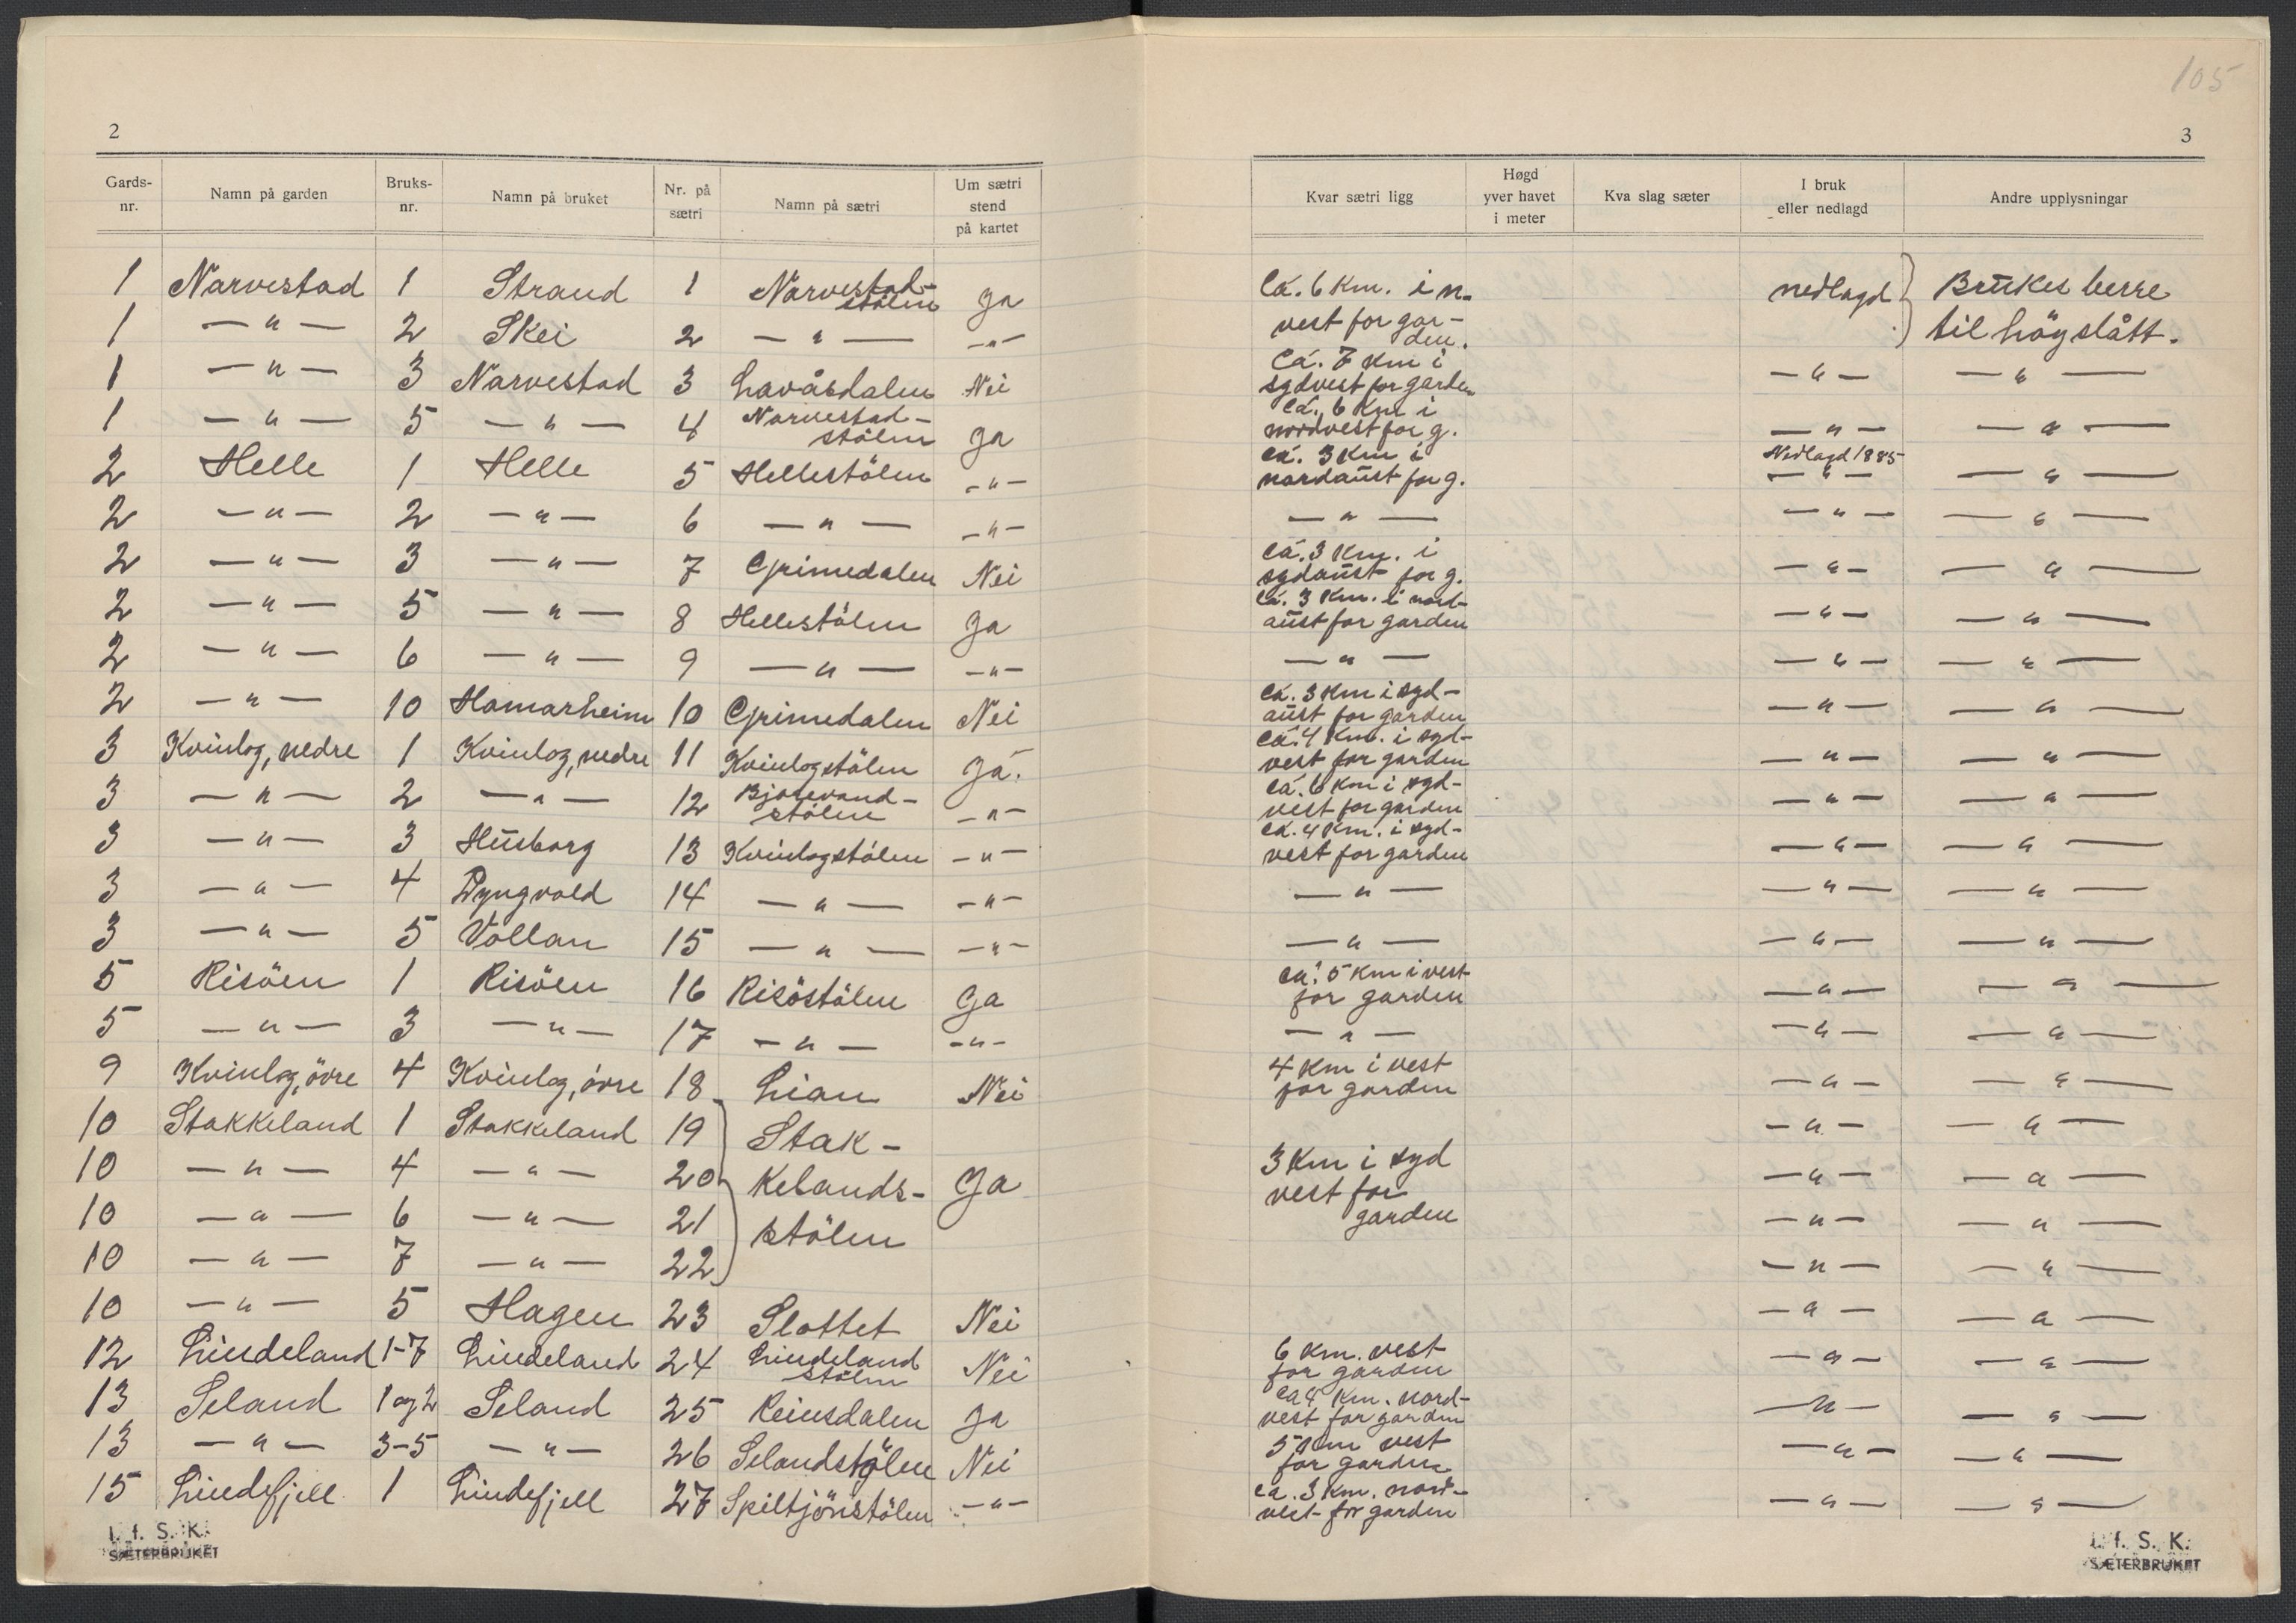 105
2
3
Gards-nr. | Namn på garden | Bruks-nr. | Namn på bruket | Nr. på sætri | Namn på sætri | Um sætri stend på kartet | Kvar sætri ligg | Høgd yver havet i meter | Kva slag sæter | I bruk eller nedlagd | Andre upplysningar
1 | Narvestad | 1 | Strand | 1 | Narvestad-stölen | Ja | Ca. 6 Km. i n.vest for gar-den. | | | nedlagd | Brukes berre til höyslått.
1 | —"— | 2 | Skei | 2 | —"— | —"—
1 | —"— | 3 | Narvestad | 3 | Lavåsdalen | Nei | Ca. 7 Km i sydvest for garden | | | —"— | —"—
1 | —"— | 5 | —"— | 4 | Narvestad-stölen | Ja | Ca. 6 Km i nordvest for g. | | | —"— | —"—
2 | Helle | 1 | Helle | 5 | Hellestölen | —"— | ca. 3 Km i nordaust for g. | | | Nedlagd 1885 —"— | —"—
2 | —"— | 2 | —"— | 6 | —"— | —"— | —"— | | | —"— | —"—
2 | —"— | 3 | —"— | 7 | Grimedalen | Nei | Ca. 3 Km. i sydaust for g. | | | —"— | —"—
2 | —"— | 5 | —"— | 8 | Hellestölen | Ja | Ca. 3 Km. i nord-aust for garden | | | —"— | —"—
2 | —"— | 6 | —"— | 9 | —"— | —"— | —"— | | | —"— | —"—
2 | —"— | 10 | Hamarheim | 10 | Grimedalen | Nei | Ca. 3 Km i syd-aust for garden | | | —"— | —"—
3 | Kvinlog, nedre | 1 | Kvinlog, nedre | 11 | Kvinlogstölen | Ja. | Ca. 4 Km. i syd-vest for garden | | | —"— | —"—
3 | —"— | 2 | —"— | 12 | stölen | —"— | Ca. 6 Km i syd-vest for garden | | | —"— | —"—
3 | —"— | 3 | Husborg | 13 | Kvinlogstölen | —"— | Ca. 4 Km. i syd-vest for garden | | | —"— | —"—
3 | —"— | 4 | Lyngvold | 14 | —"— | —"— | —"— | | | —"— | —"—
3 | —"— | 5 | Vollan | 15 | —"— | —"— | —"— | | | —"— | —"—
5 | Risöen | 1 | Risöen | 16 | Risöstölen | Ja | ca. 5 Km i vest for garden | | | —"— | —"—
5 | —"— | 3 | —"— | 17 | —"— | —"— | —"— | | | —"— | —"—
9 | Kvinlog, övre | 4 | Kvinlog, övre | 18 | Lian | Nei | 4 Km i vest for garden | | | —"— | —"—
10 | Stakkeland | 1 | Stakkeland | 19 | Stak- | | | | | —"— | —"—
10 | —"— | 4 | —"— | 20 | kelands- | Ja | 3 Km i syd vest for garden | | | —"— | —"—
10 | —"— | 6 | —"— | 21 | stölen | | | | | —"— | —"—
10 | —"— | 7 | —"— | 22 | | | | | | —"— | —"—
10 | —"— | 5 | Hagen | 23 | Slottet | Nei | | | | —"— | —"—
12 | Lindeland | 1-7 | Lindeland | 24 | Lindeland stölen | Nei | 6 Km. vest for garden | | | —"— | —"—
13 | Seland | 1 og 2 | Seland | 25 | Reinsdalen | Ja | ca 4 Km. nord-vest for garden | | | —"— | —"—
13 | —"— | 3-5 | —"— | 26 | Selandstölen | Nei | 5 Km vest for garden | | | —"— | —"—
15 | Lindefjell | 1 | Lindefjell | 27 | Spiltjönstölen | —"— | ca. 3 Km. nord-vest for garden | | | —"— | —"—
I. f. S. K.
SÆTERBRUKET
I. f. S. K.
SÆTERBRUKET